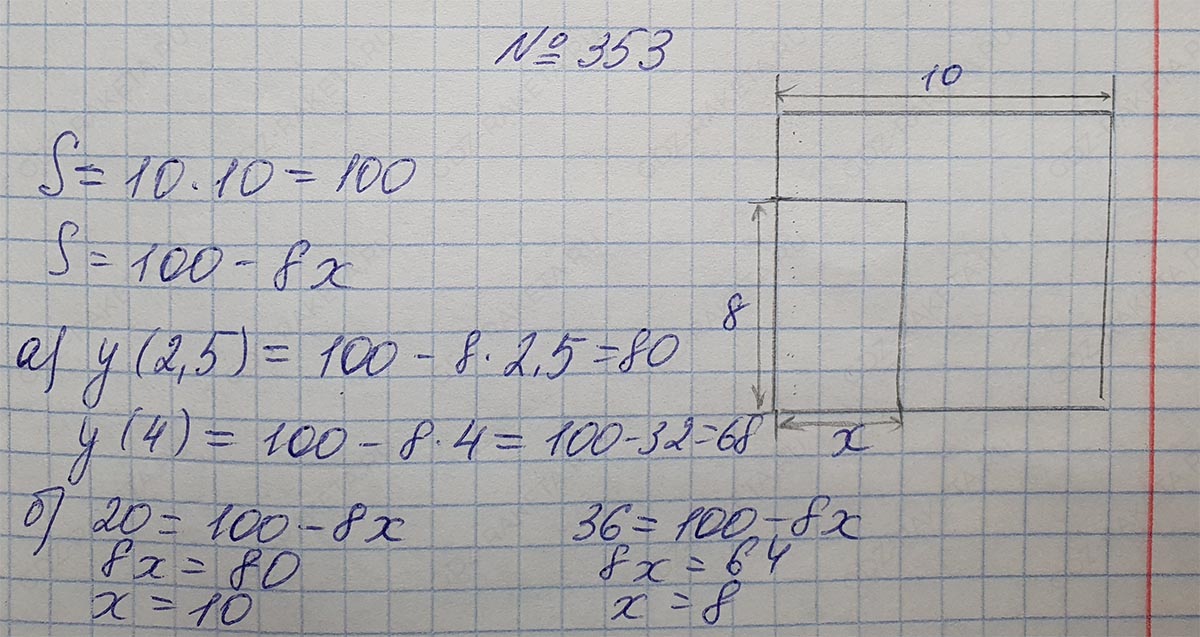 № 353
10
S = 10 · 10 = 100
S = 100 - 8x
8
а) y (2,5) = 100 - 8 · 2,5 = 80
y (4) = 100 - 8 · 4 = 100 - 32 = 68
x
б) 20 = 100 - 8x 36 = 100 - 8x
8x = 80 8x = 64
x = 10 x = 8